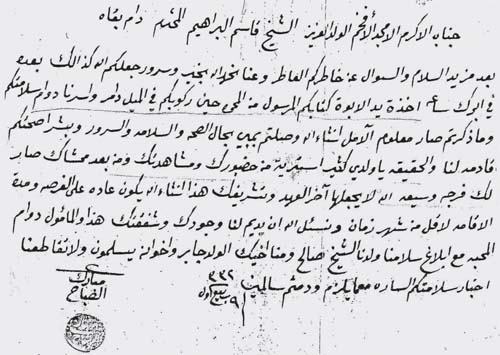 جنابه الاكرم الامجد الأفخم الولد العزيز الشيخ قاسم البراهيم المحترم دام بقاه
بعد مزيد السلام والسوال عن خاطركم العاطر وعنا نحمد الله بخير وسرور جعلكم الله كذالك بعده
في ابرك اخذة يد الابوة كتابكم المرسول من حين ركوبكم في الميل دامر واسرنا دوام سلامتكم
وما ذكرتم صار معلوم الامل انشاء الله وصلتم بمبي بحال الصحه والسلامه والسرور وبشر اصحتكم
قادمه لنا والحقيقه ياولدي كثير استريت من حضورك ومشاهديتك ومن بعد ممشاك صار
لك فرجه وسيعه الله لا يجعلها آخر العهد وتشريفك هذا انشاء الله يكون عاده على الفرصه ومدة
الاقامه لاقل من شهر زمان ونسئل الله ان يديم لنا وجودك وشفقتك هذا والمأمول دوام
المحبه مع ابلاغ سلامنا ولدنا الشيخ صالح ومنا اخيك الولد جابر واخوانه يسلمون ولا تقاطعنا
اخبار سلامتكم الساره مع مايلزم ودمتم سالمين
٩ ربيع اول ٣٣٢
مبارك
الصباح